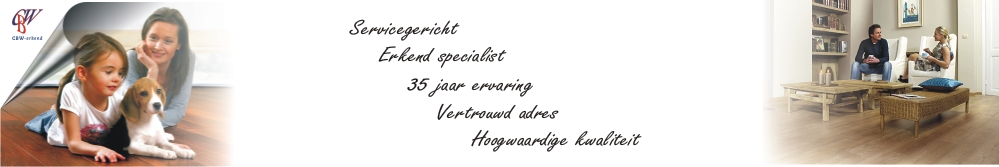 CBW
CBW-erkend
Servicegericht
Erkend specialist
35 jaar ervaring
Vertrouwd adres
Hoogwaardige kwaliteit